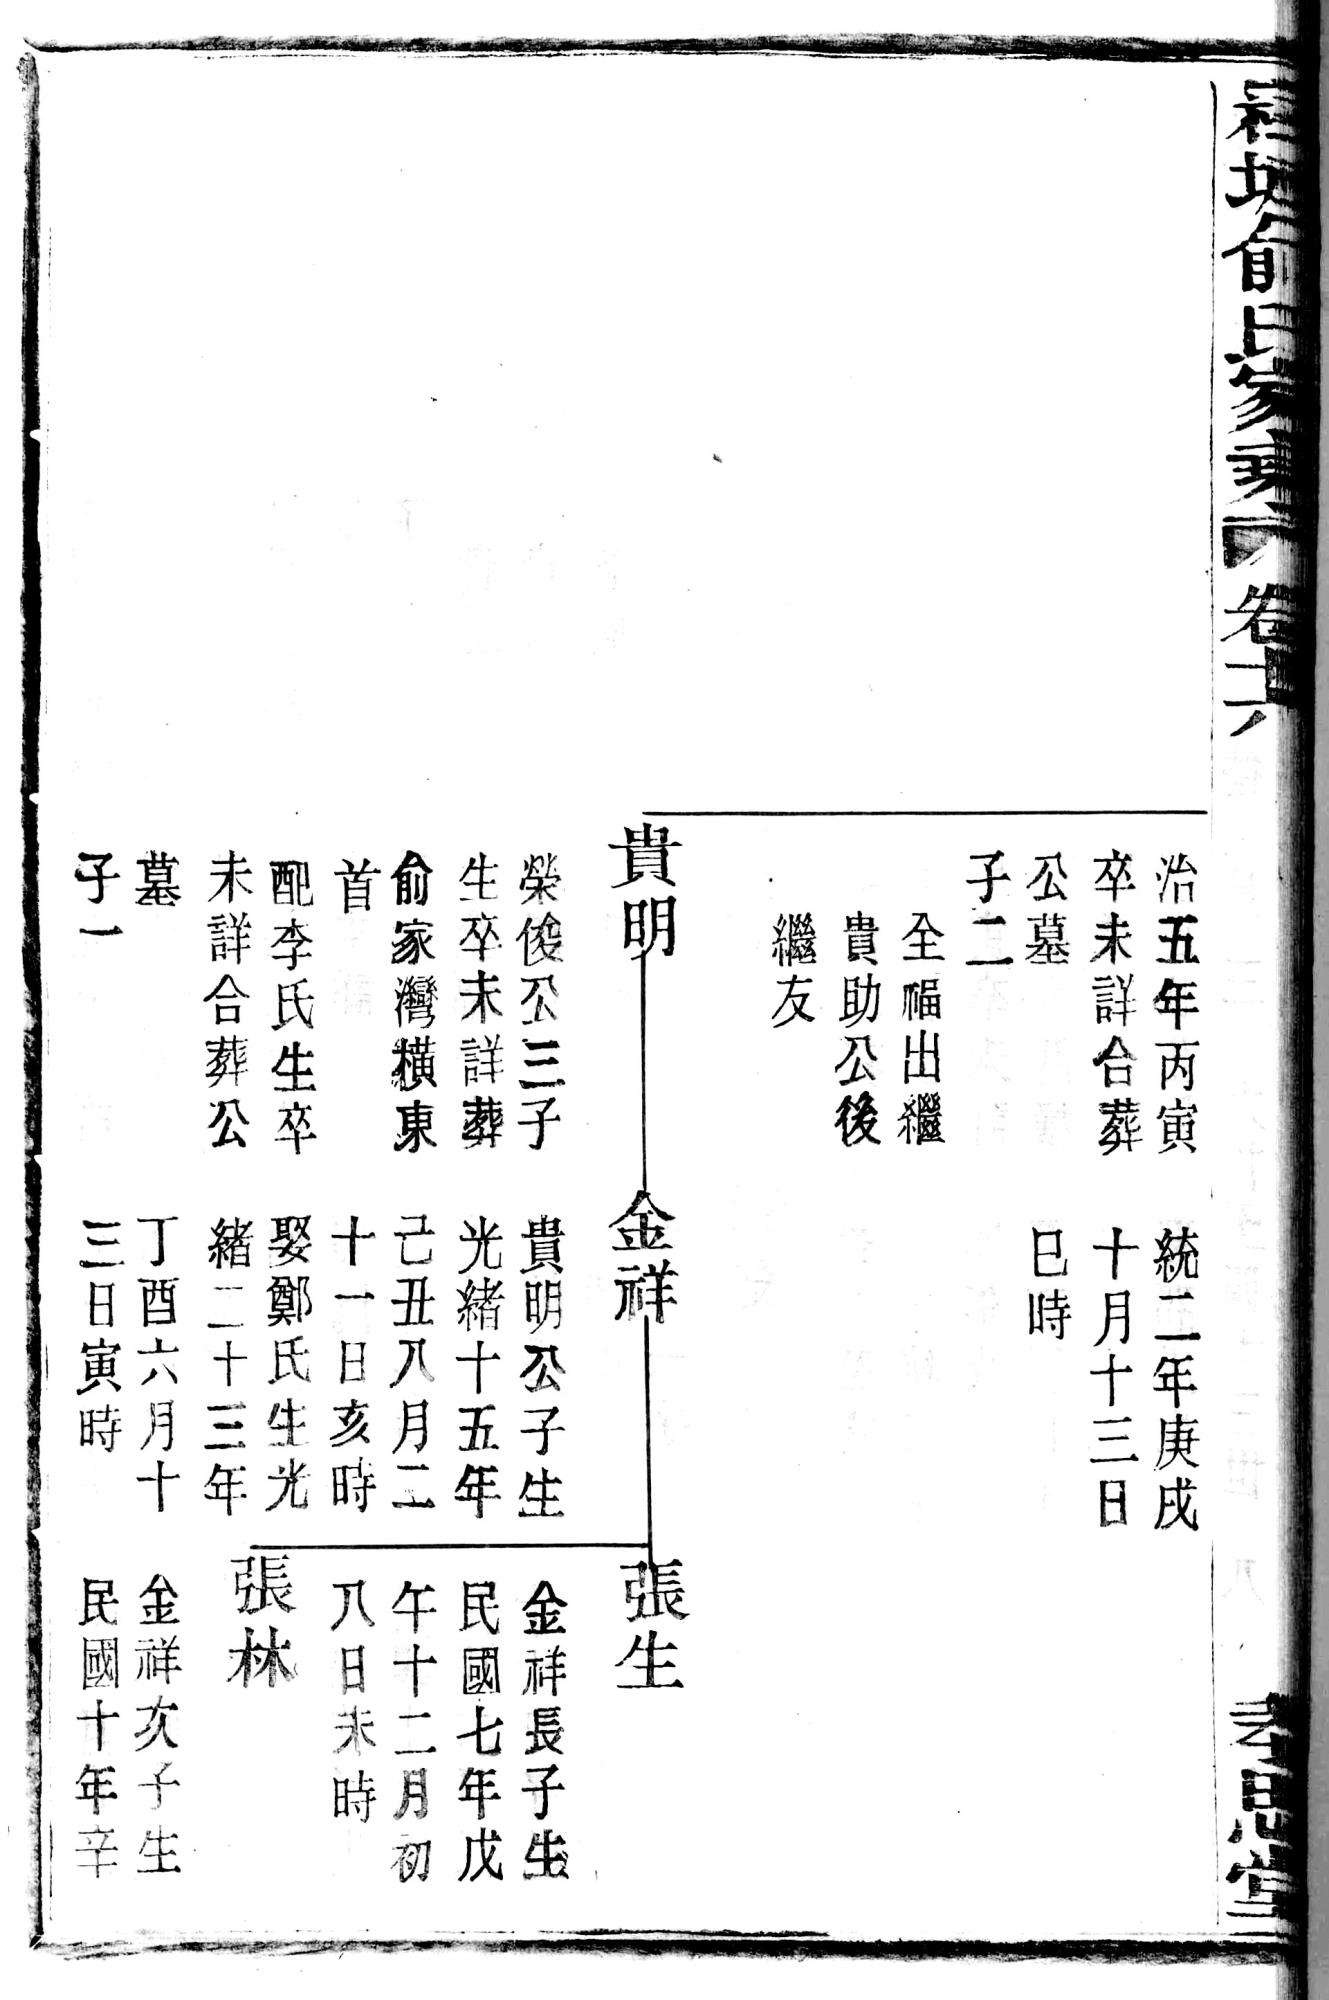 俞氏家乘
卷十六
孝思堂
治五年丙寅
卒未詳合葬
公墓
子二
全福出繼
貴助公後
繼友
統二年庚戌
十月十三日
巳時
貴明
榮俊公三子
生卒未詳葬
俞家灣橫東
首
配李氏生卒
未詳合葬公
墓
子一
金祥
貴明公子生
光緒十五年
己丑八月二
十一日亥時
娶鄭氏生光
緒二十三年
丁酉六月十
三日寅時
張生
金祥長子生
民國七年戊
午十二月初
八日未時
張林
金祥次子生
民國十年辛